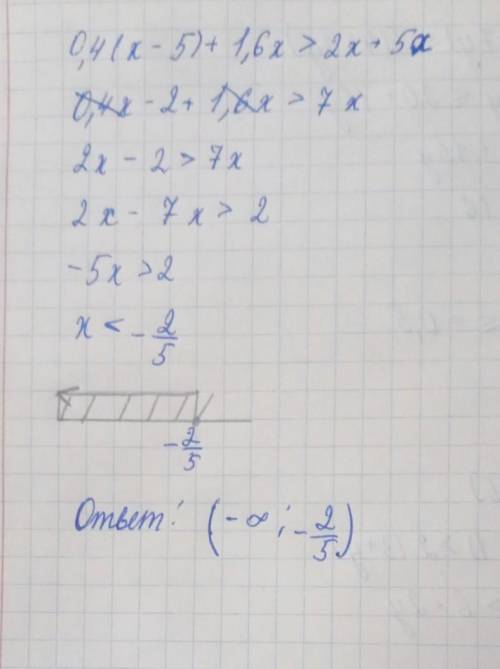 0,4(x - 5) + 1,6x > 2x + 5x
0,4x - 2 + 1,6x > 7x
2x - 2 > 7x
2x - 7x > 2
-5x > 2
x < -2/5
-2/5
Ответ: (-∞; -2/5)